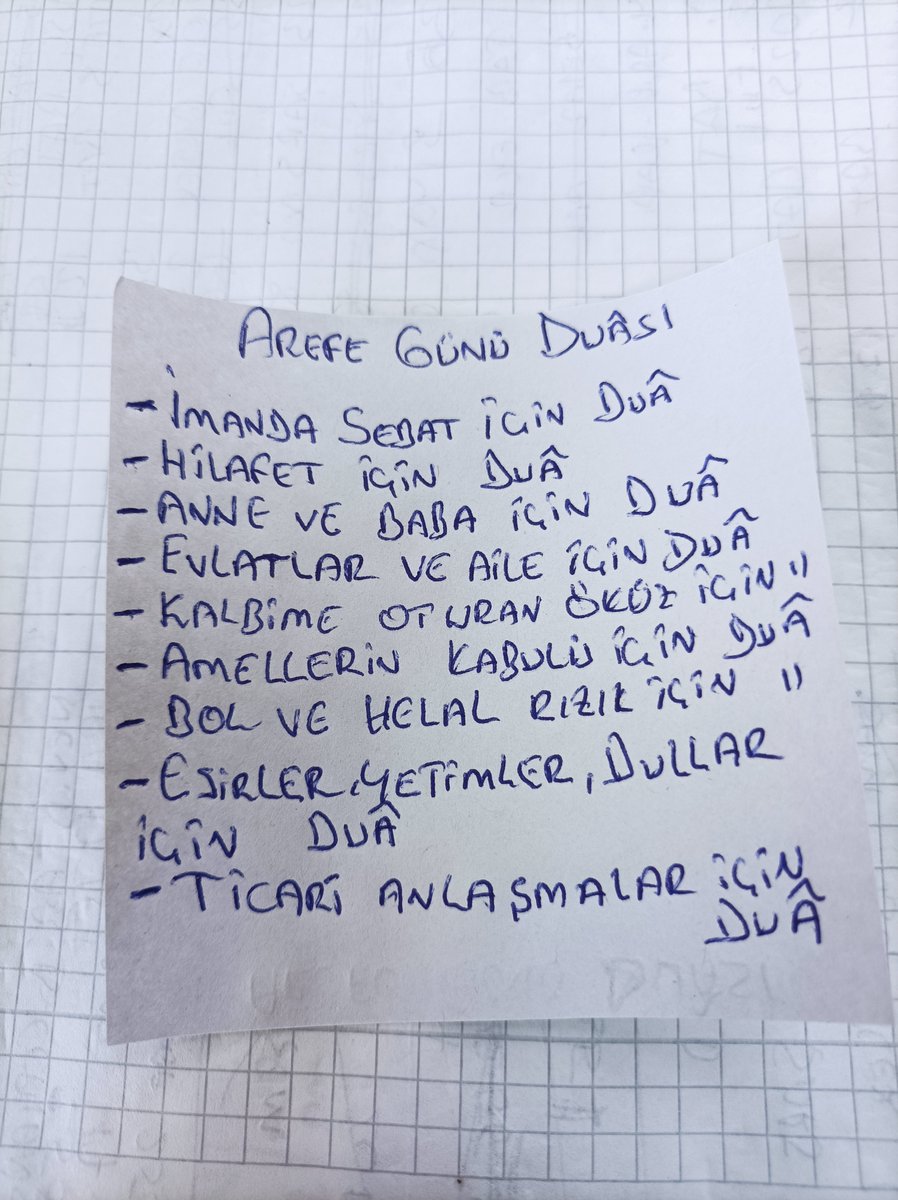 AREFE GÜNÜ DUÂSI
- İMANDA SEBAT İÇİN DUÂ
- HİLAFET İÇİN DUÂ
- ANNE VE BABA İÇİN DUÂ
- EVLATLAR VE AİLE İÇİN DUÂ
- KALBİME OTURAN ÖKÜZ İÇİN "
- AMELLERİN KABULÜ İÇİN DUÂ
- BOL VE HELAL RIZIK İÇİN "
- ESİRLER, YETİMLER, DULLAR
İÇİN DUÂ
- TİCARİ ANLAŞMALAR İÇİN
DUÂ